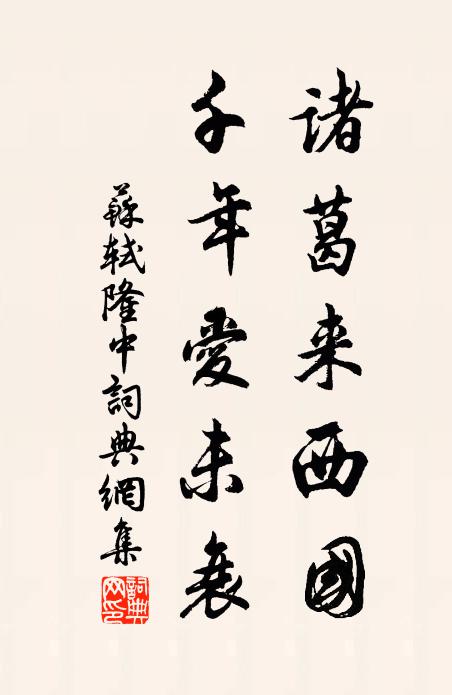 諸葛来西國
千年愛未衰
蘇軾隆中詞典網集
詞典網印